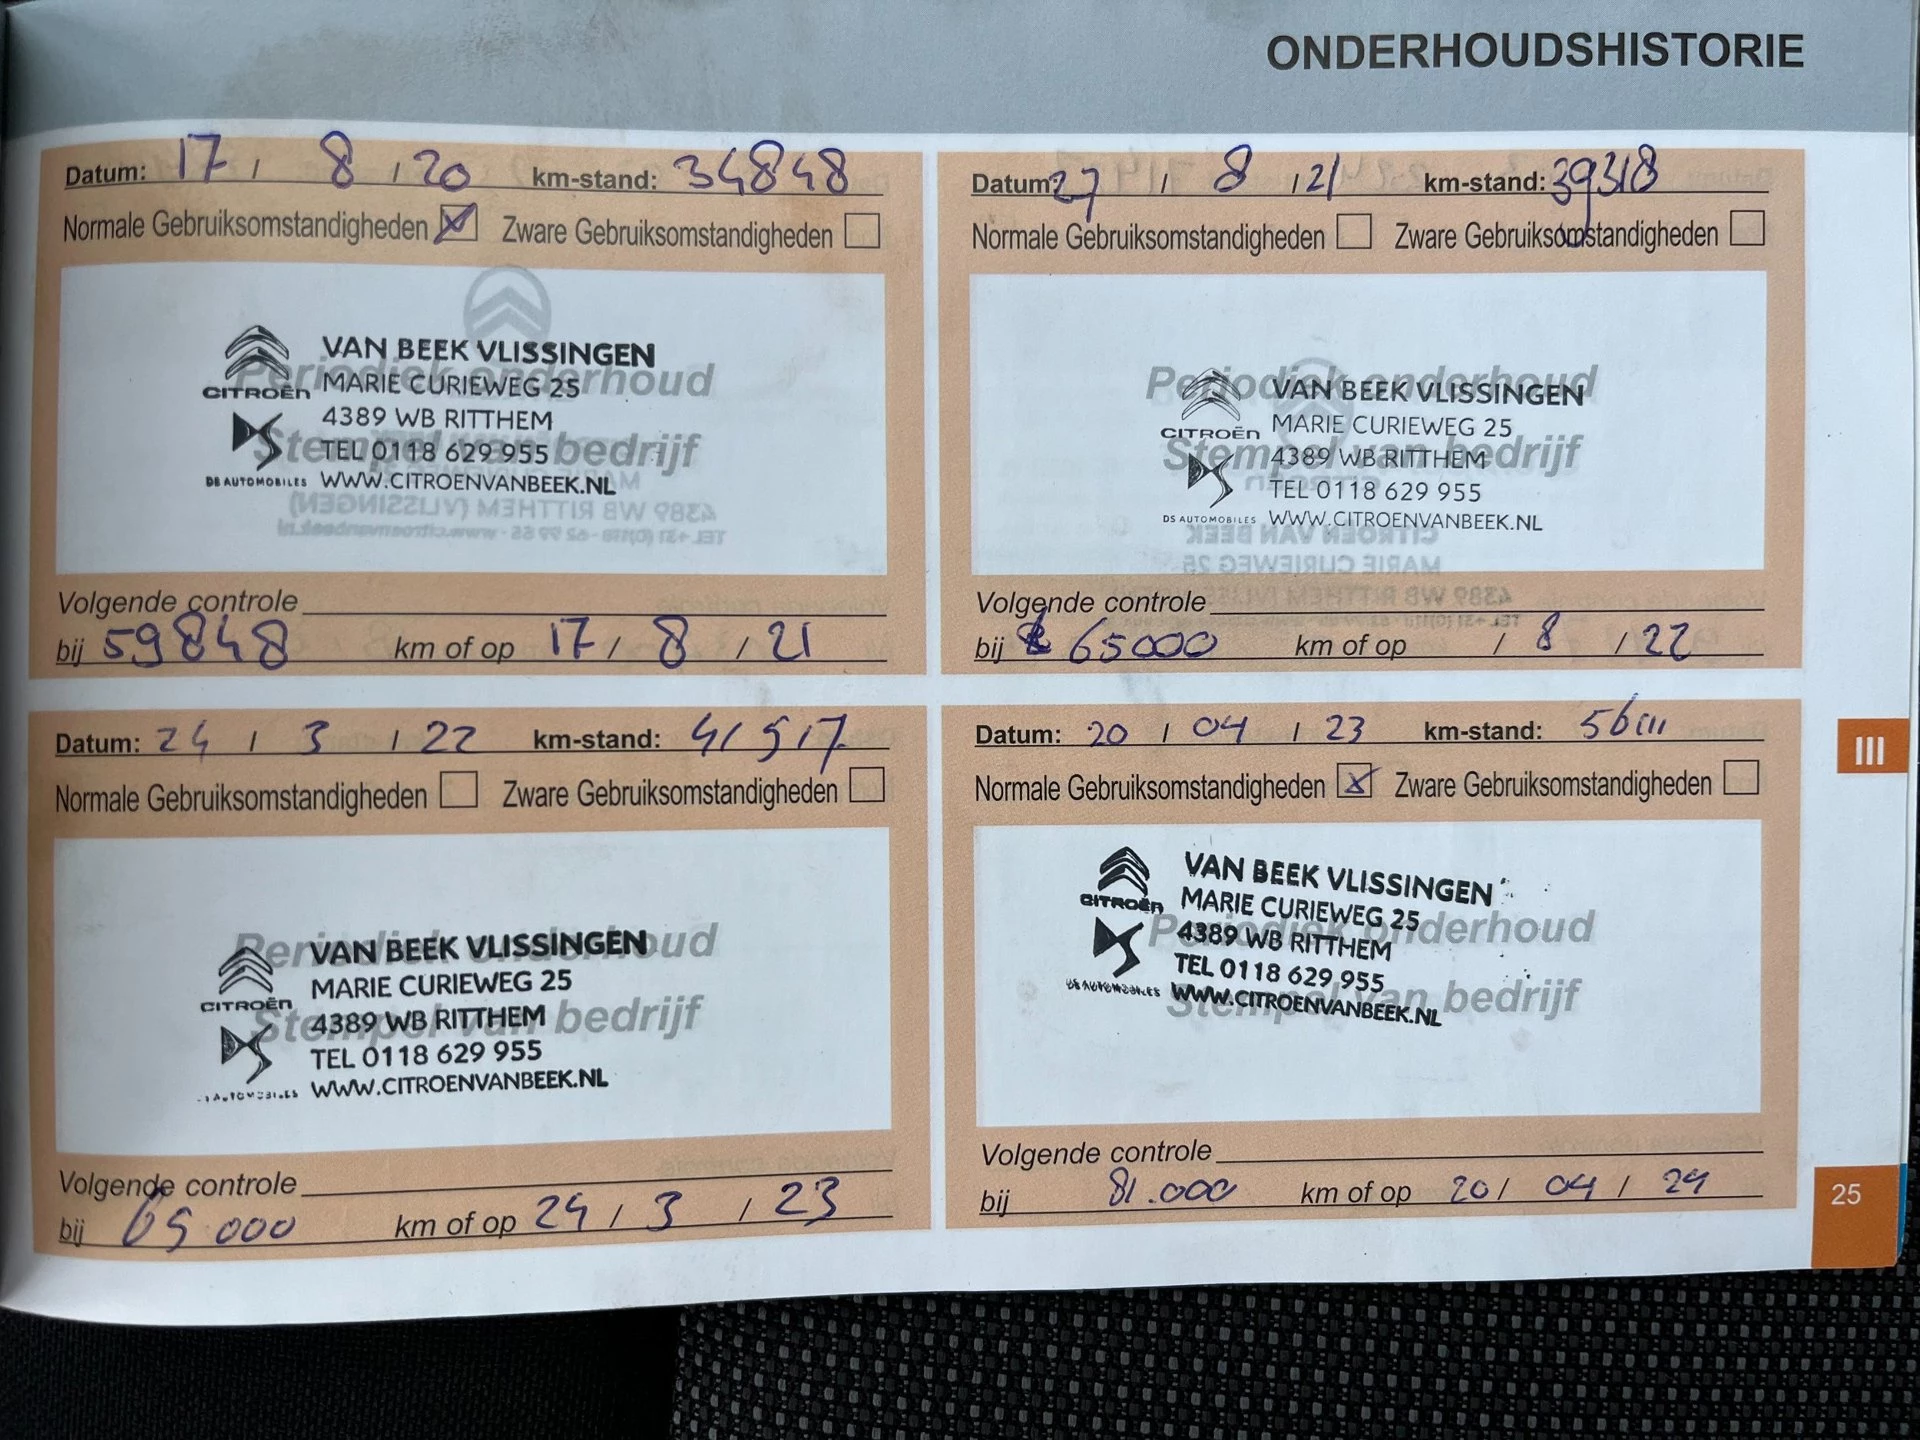 ONDERHOUDSHISTORIE
Datum: 17 / 8 / 20 km-stand: 34848
Normale Gebruiksomstandigheden Zware Gebruiksomstandigheden
Periodiek onderhoud
Stempel van bedrijf
CITROËN
DS AUTOMOBILES
VAN BEEK VLISSINGEN
MARIE CURIEWEG 25
4389 WB RITTHEM
TEL 0118 629 955
WWW.CITROENVANBEEK.NL
Volgende controle
bij 59848 km of op 17 / 8 / 21
Datum: 27 / 8 / 21 km-stand: 39318
Normale Gebruiksomstandigheden Zware Gebruiksomstandigheden
Periodiek onderhoud
Stempel van bedrijf
CITROËN
DS AUTOMOBILES
VAN BEEK VLISSINGEN
MARIE CURIEWEG 25
4389 WB RITTHEM
TEL 0118 629 955
WWW.CITROENVANBEEK.NL
Volgende controle
bij 65000 km of op / 8 / 22
Datum: 24 / 3 / 22 km-stand: 41517
Normale Gebruiksomstandigheden Zware Gebruiksomstandigheden
Periodiek onderhoud
Stempel van bedrijf
CITROËN
VAN BEEK VLISSINGEN
MARIE CURIEWEG 25
4389 WB RITTHEM
TEL 0118 629 955
WWW.CITROENVANBEEK.NL
Volgende controle
bij 65000 km of op 24 / 3 / 23
Datum: 20 / 04 / 23 km-stand: 56111
Normale Gebruiksomstandigheden Zware Gebruiksomstandigheden
Periodiek onderhoud
Stempel van bedrijf
CITROËN
DS AUTOMOBILES
VAN BEEK VLISSINGEN
MARIE CURIEWEG 25
4389 WB RITTHEM
TEL 0118 629 955
WWW.CITROENVANBEEK.NL
Volgende controle
bij 81.000 km of op 20 / 04 / 24
III
25